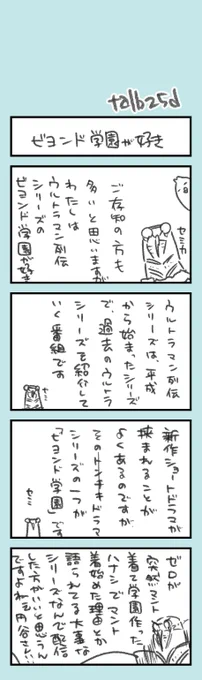 talb25d
ビヨンド学園が好き
ご存知の方も
多いと思いますが
わたしは
ウルトラマン列伝
シリーズの
ビヨンド学園が好き
セミカ
ウルトラマン列伝
シリーズは、平成
から始まったシリーズ
で、過去のウルトラ
シリーズを紹介して
いく番組です
新作ショートドラマが
挟まれることが
よくあるのですが
そのトンチキドラマ
シリーズの一つが
「ビヨンド学園」です
セミ
ゼロが
突然マント
着て学園作った
ハナシでマント
着始めた理由とか
語られてる大事な
シリーズなんで配信
した方がいいと思うん
ですよね
円谷さん